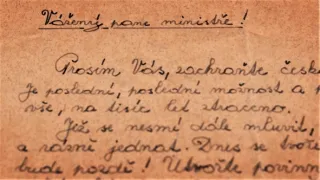 Vážený pane ministře!
Prosím Vás, zachraňte česk
Je poslední, poslední možnost a p
vše, na tisíc let ztraceno.
Již se nesmí dále mluvit,
a rázně jednat. Dnes se tvoří
bude pozdě! Utvořte povinn